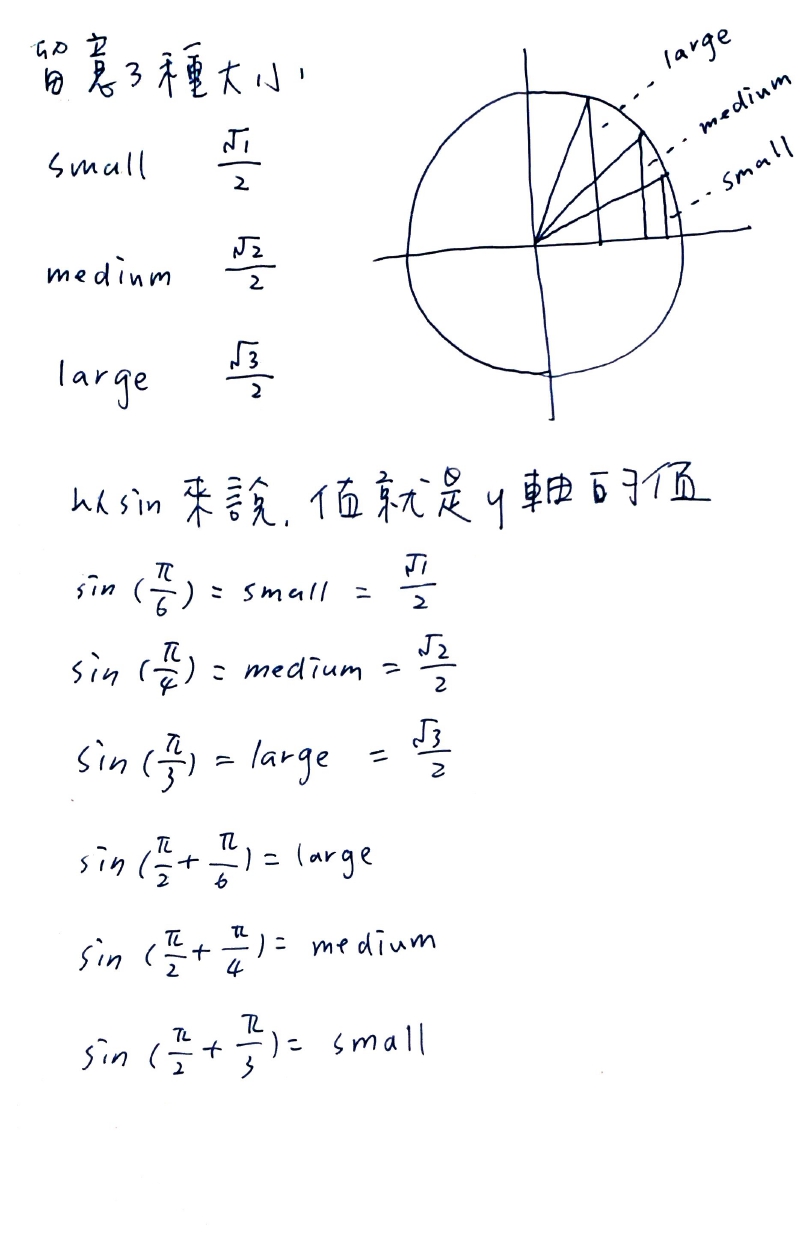 留意3種大小
small √1/2
medium √2/2
large √3/2
large
medium
small
以sin來說, 值就是y軸的值
sin (π/6) = small = √1/2
sin (π/4) = medium = √2/2
sin (π/3) = large = √3/2
sin (π/2 + π/6) = large
sin (π/2 + π/4) = medium
sin (π/2 + π/3) = small